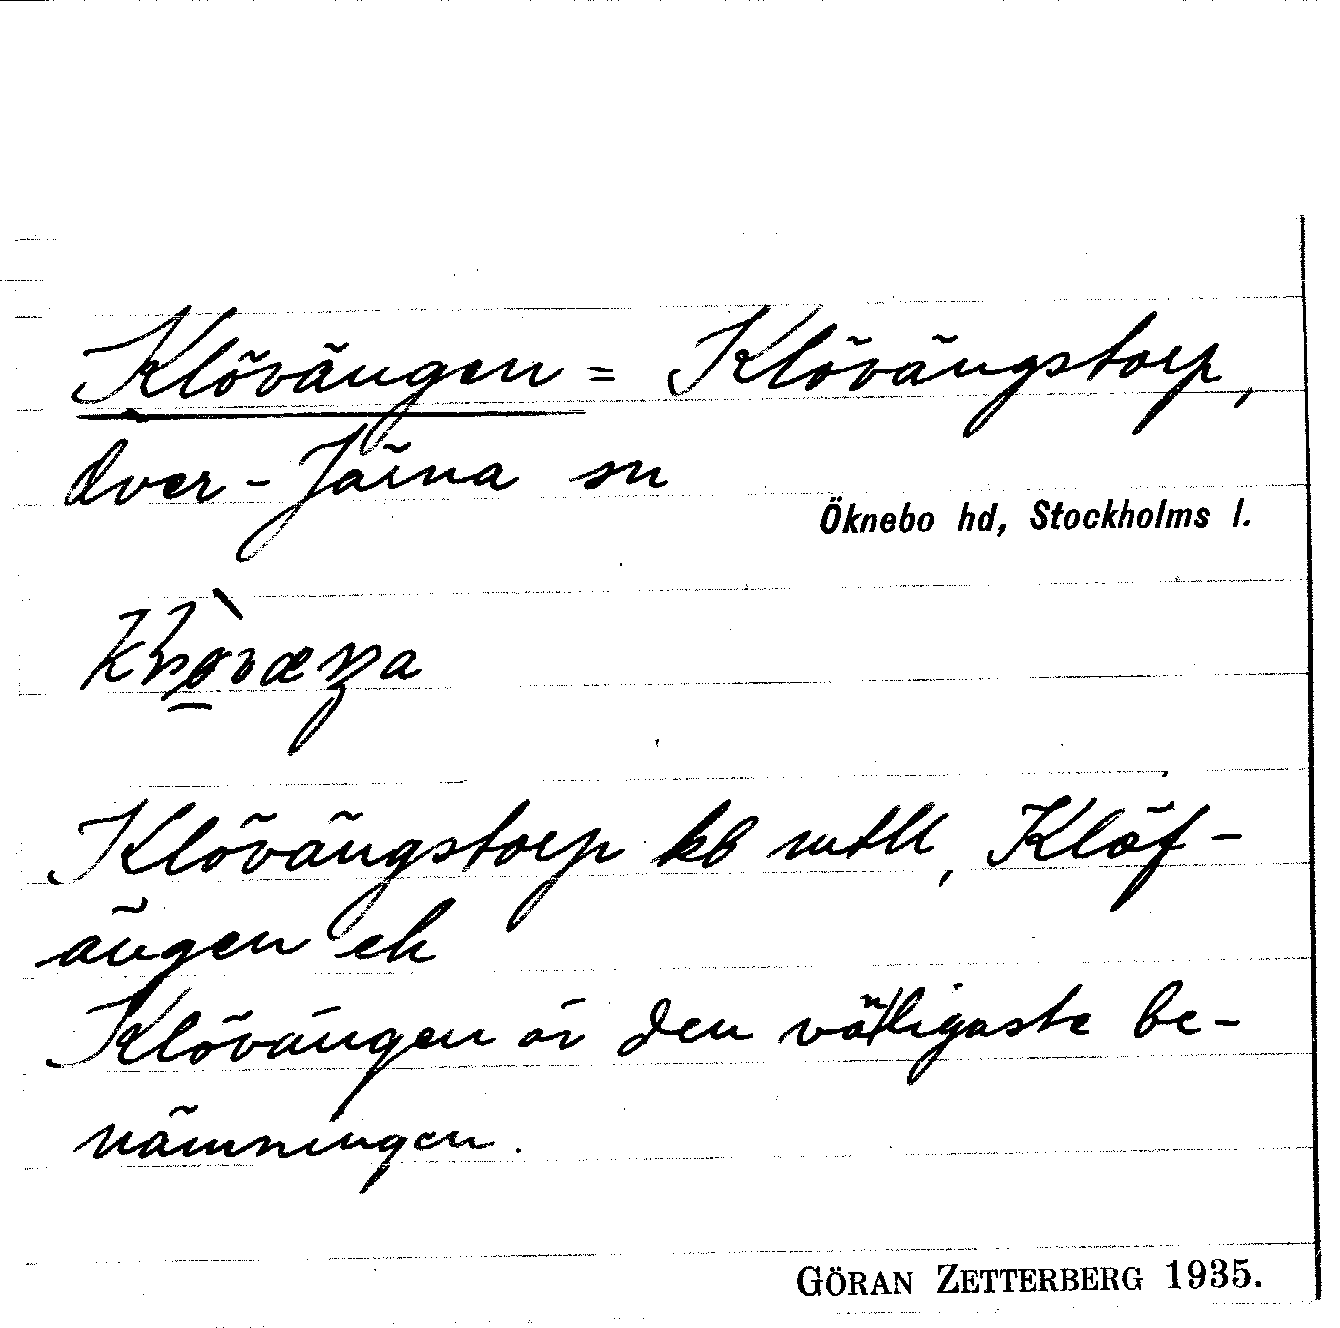 Klövängen = Klövängstorp,
Över-Järna sn
Öknebo hd, Stockholms l.
Klövängstorp kb mtll, Klöf-
ängen ek
Klövängen är den vänligaste be-
nämningen.
GÖRAN ZETTERBERG 1935.